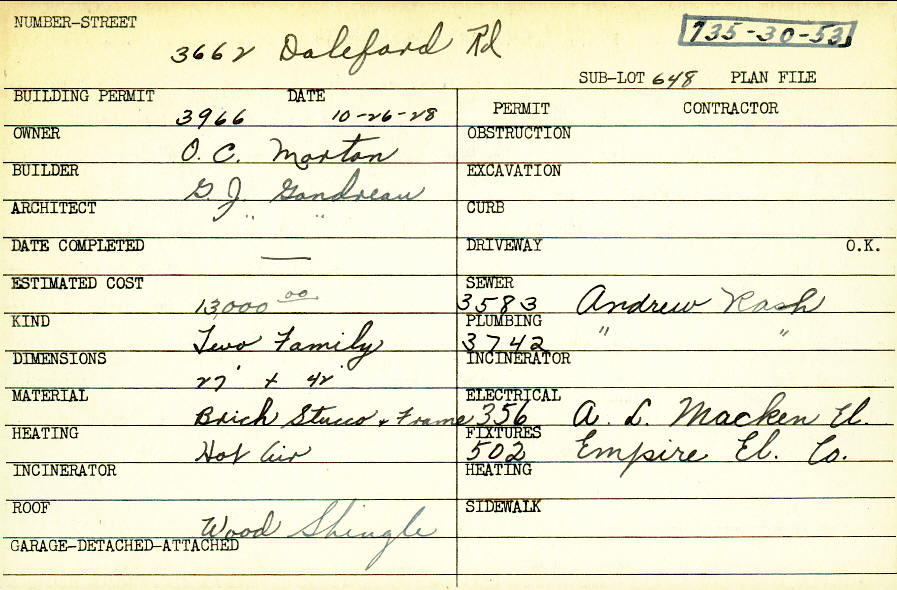 NUMBER-STREET
3662 Daleford Rd
735-30-53
SUB-LOT 648 PLAN FILE
BUILDING PERMIT DATE
3966 10-26-28
PERMIT CONTRACTOR
OWNER
O. C. Morton
BUILDER
G. J. Gondreau
ARCHITECT
" "
DATE COMPLETED
—
ESTIMATED COST
13000 00
KIND
Two Family
DIMENSIONS
27' + 42'
MATERIAL
Brick Stucco + Frame
HEATING
Hot Air
INCINERATOR
ROOF
Wood Shingle
GARAGE-DETACHED-ATTACHED
OBSTRUCTION
EXCAVATION
CURB
DRIVEWAY O.K.
SEWER
3583 Andrew Rash
PLUMBING
3742 " "
INCINERATOR
ELECTRICAL
356 A. L. Macken El.
FIXTURES
502 Empire El. Co.
HEATING
SIDEWALK